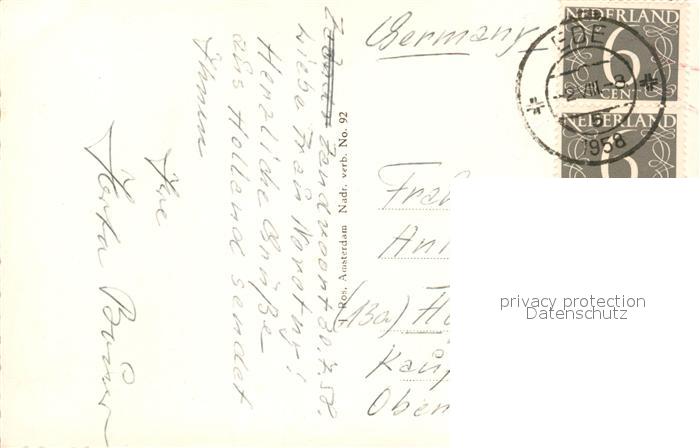 Zandvoort 30.7.58.
Liebe Frau Novotny!
Herzliche Grüße
aus Holland sendet
Ihnen
Ihre
Herta
J. Ros. Amsterdam Nadr. verb. No. 92
Germany
NEDERLAND
6
CENT
NEDERLAND
6
EDE
2 VIII-8
1958
Frau
(13a)
Ober
privacy protection
Datenschutz